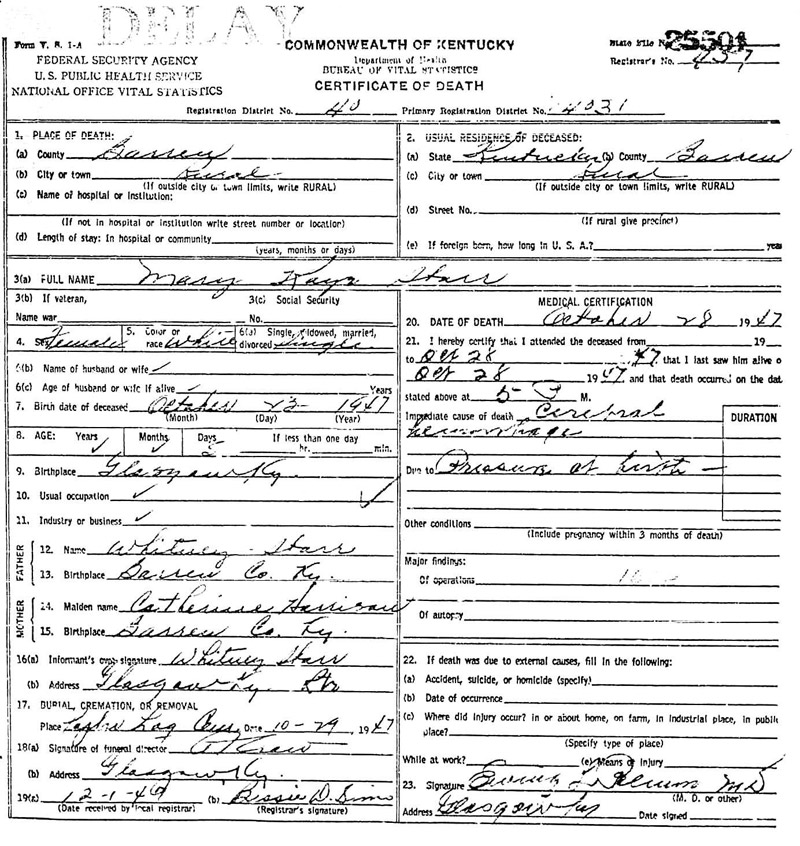 DELAY
Form V. S. 1-A
FEDERAL SECURITY AGENCY
U. S. PUBLIC HEALTH SERVICE
NATIONAL OFFICE VITAL STATISTICS
COMMONWEALTH OF KENTUCKY
Department of Health
BUREAU OF VITAL STATISTICS
CERTIFICATE OF DEATH
State File No. 25501
Registrar's No. 437
Registration District No. 40 Primary Registration District No. 4031
1. PLACE OF DEATH:
(a) County Barren
(b) City or town Rural
(If outside city or town limits, write RURAL)
(c) Name of hospital or institution:
(If not in hospital or institution write street number or location)
(d) Length of stay: In hospital or community
(years, months or days)
2. USUAL RESIDENCE OF DECEASED:
(a) State Kentucky (b) County Barren
(c) City or town Rural
(If outside city or town limits, write RURAL)
(d) Street No.
(If rural give precinct)
(e) If foreign born, how long in U. S. A.? yea
3(a) FULL NAME Mary Kaye Starr
3(b) If veteran, 3(c) Social Security
Name war No.
4. Sex Female 5. Color or race White 6(a) Single, widowed, married, divorced Single
6(b) Name of husband or wife ✓
6(c) Age of husband or wife if alive ✓ Years
7. Birth date of deceased October 23 1947
(Month) (Day) (Year)
8. AGE: Years ✓ Months ✓ Days 5 If less than one day hr. min.
9. Birthplace Glasgow Ky.
10. Usual occupation ✓ ✓
11. Industry or business ✓
FATHER
12. Name Whitney Starr
13. Birthplace Barren Co. Ky.
MOTHER
14. Maiden name Catherine Harrison
15. Birthplace Barren Co. Ky.
16(a) Informant's own signature Whitney Starr
(b) Address Glasgow Ky.
17. BURIAL, CREMATION, OR REMOVAL
Place Date 10-29 1947
18(a) Signature of funeral director
(b) Address Glasgow Ky.
19(a) 12-1-49 (b) Bessie D. Sims
(Date received by local registrar) (Registrar's signature)
MEDICAL CERTIFICATION
20. DATE OF DEATH October 28 1947
21. I hereby certify that I attended the deceased from 19
to Oct 28 47 that I last saw him alive o
Oct 28 1947, and that death occurred on the dat
stated above at 5 M.
Immediate cause of death Cerebral
hemorrhage
DURATION
Due to Pressure at birth –
Other conditions
(Include pregnancy within 3 months of death)
Major findings:
Of operations
Of autopsy
22. If death was due to external causes, fill in the following:
(a) Accident, suicide, or homicide (specify)
(b) Date of occurrence
(c) Where did injury occur? in or about home, on farm, in industrial place, in public
place?
(Specify type of place)
While at work? (e) Means of injury
23. Signature MD
(M. D. or other)
Address Glasgow Ky Date signed